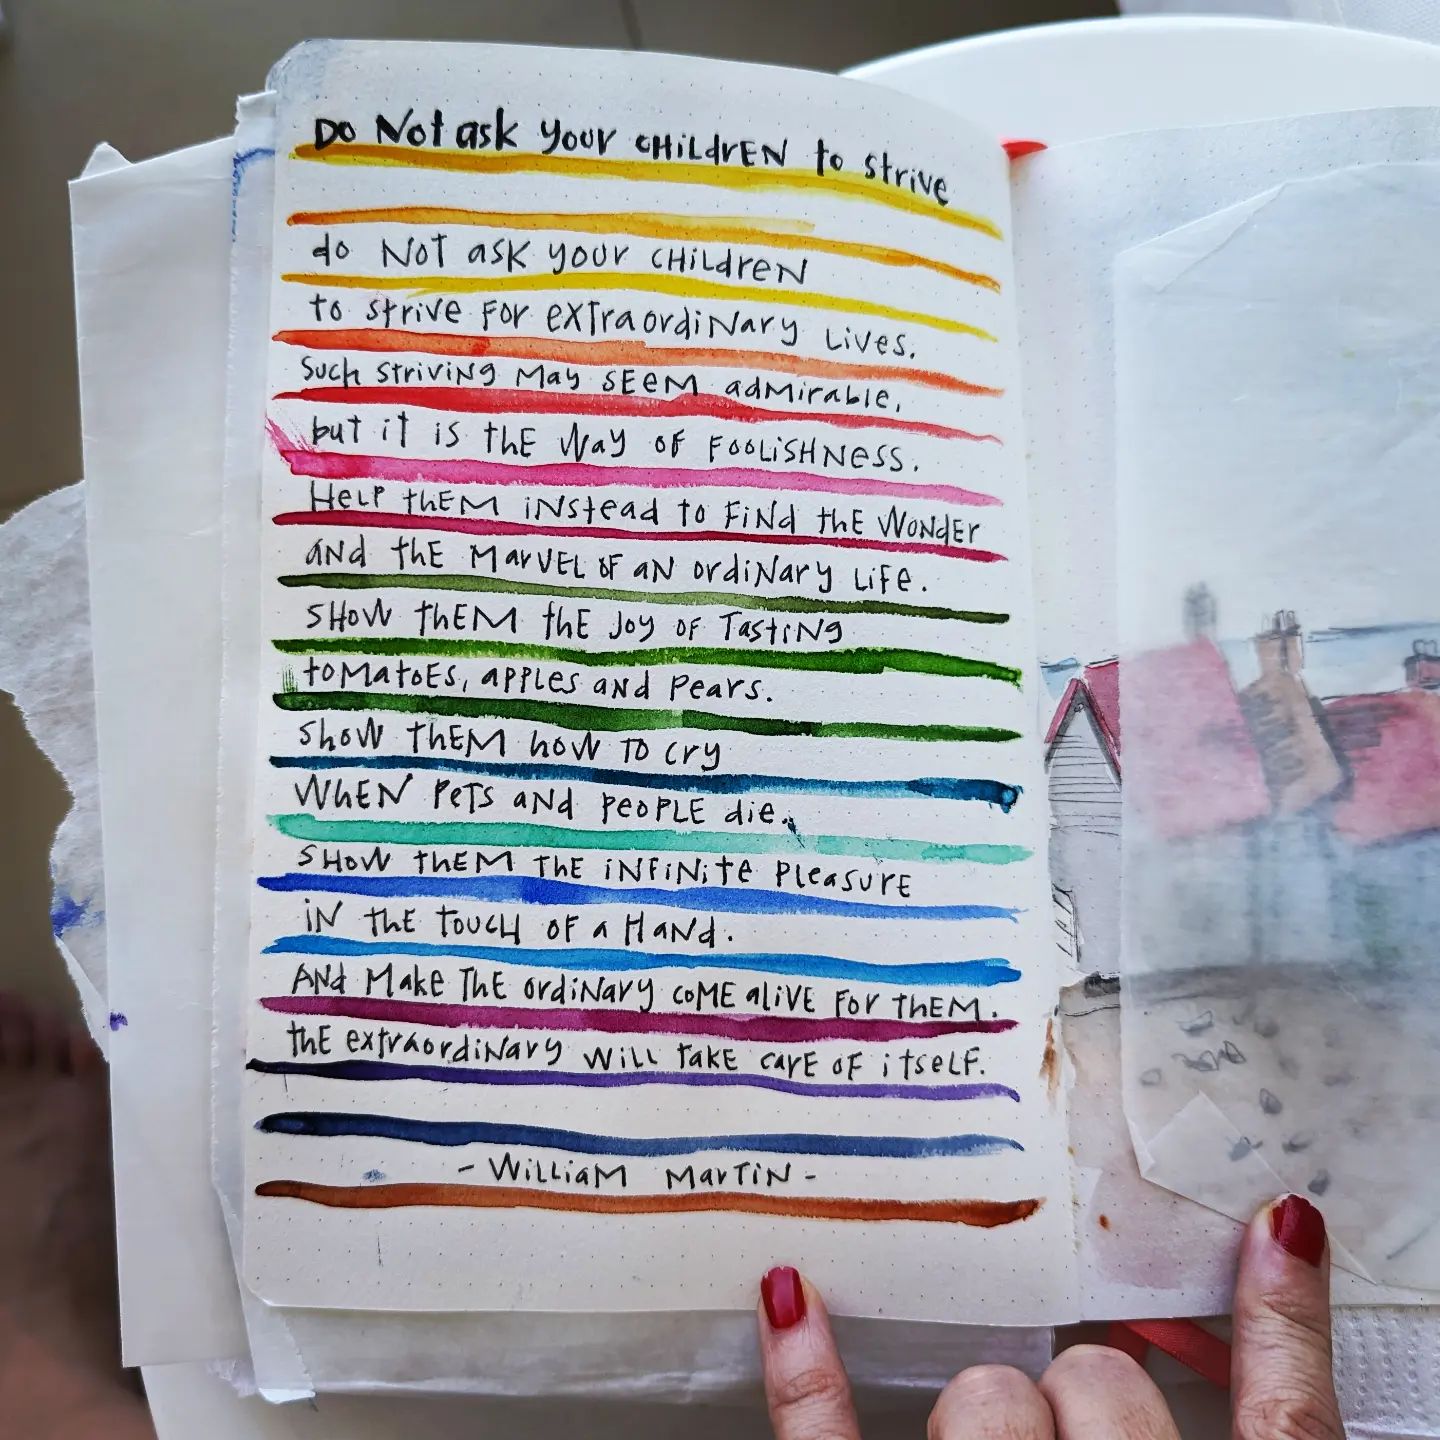 Do Not ask your CHildrEN to strive
do Not ask your CHildreN
to strive For extraordiNary Lives.
Such striviNg May SEeM admirable,
but it is thE Way oF FooLiSHNess.
HeLp thEM iNstead to FiNd thE WoNdEr
aNd thE MarVEL oF aN ordiNary LiFe.
SHoW thEM thE Joy oF TastiNg
toMatoEs, apples aNd Pears.
SHoW thEM hoW To cry
WhEN PeTs aNd pEoPLE die.
SHoW thEM ThE iNFiNite PleaSurE
iN thE toucH oF a HaNd.
ANd Make ThE ordiNary coME aliVE For thEM.
thE extraordiNary WiLL take carE oF itself.
- WiLLiaM MarTiN -